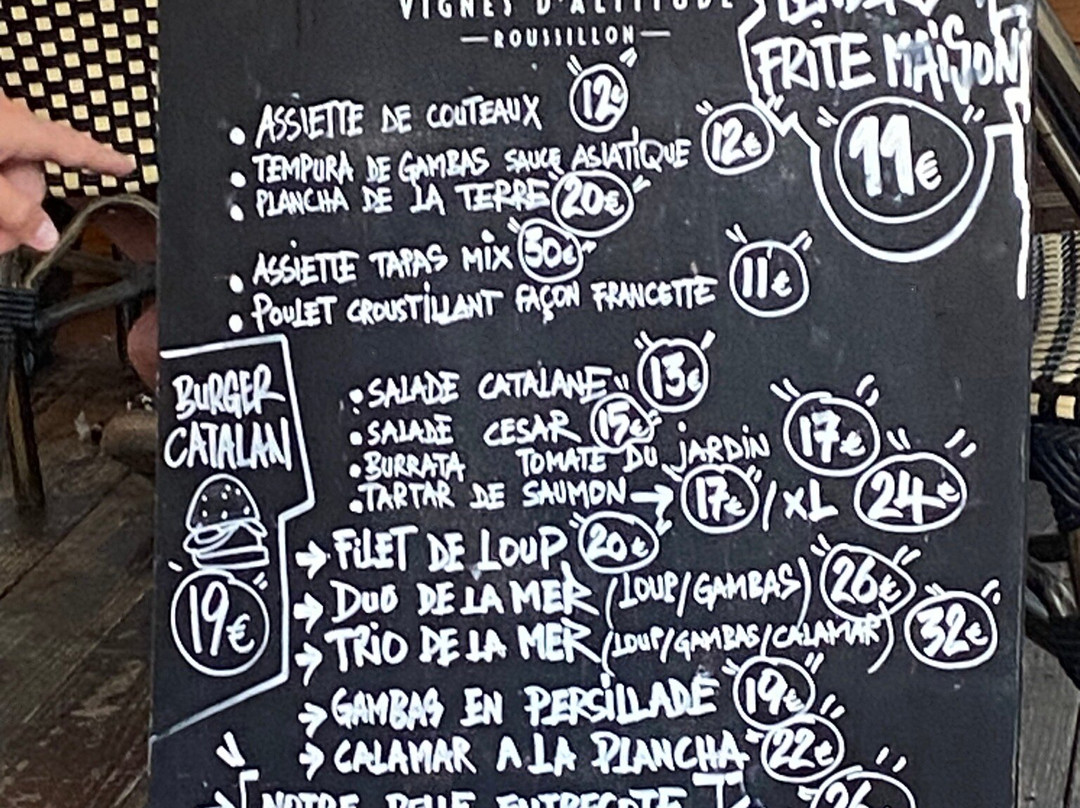 VIGNES D'ALTITUDE
—ROUSSILLON—
FRITE MAISON
11€
• ASSIETTE DE COUTEAUX 12€
• TEMPURA DE GAMBAS SAUCE ASIATIQUE 12€
• PLANCHA DE LA TERRE 20€
• ASSIETTE TAPAS MIX 30€
• POULET CROUSTILLANT FAÇON FRANCETTE 11€
BURGER
CATALAN
19€
• SALADE CATALANE 13€
• SALADE CESAR 15€
• BURRATA TOMATE DU JARDIN 17€
• TARTAR DE SAUMON → 17€ / XL 24€
→ FILET DE LOUP 20€
→ DUO DE LA MER (LOUP/GAMBAS) 26€
→ TRIO DE LA MER (LOUP/GAMBAS/CALAMAR) 32€
→ GAMBAS EN PERSILLADE 19€
→ CALAMAR A LA PLANCHA 22€
NOTRE BELLE ENTRECOTE 26